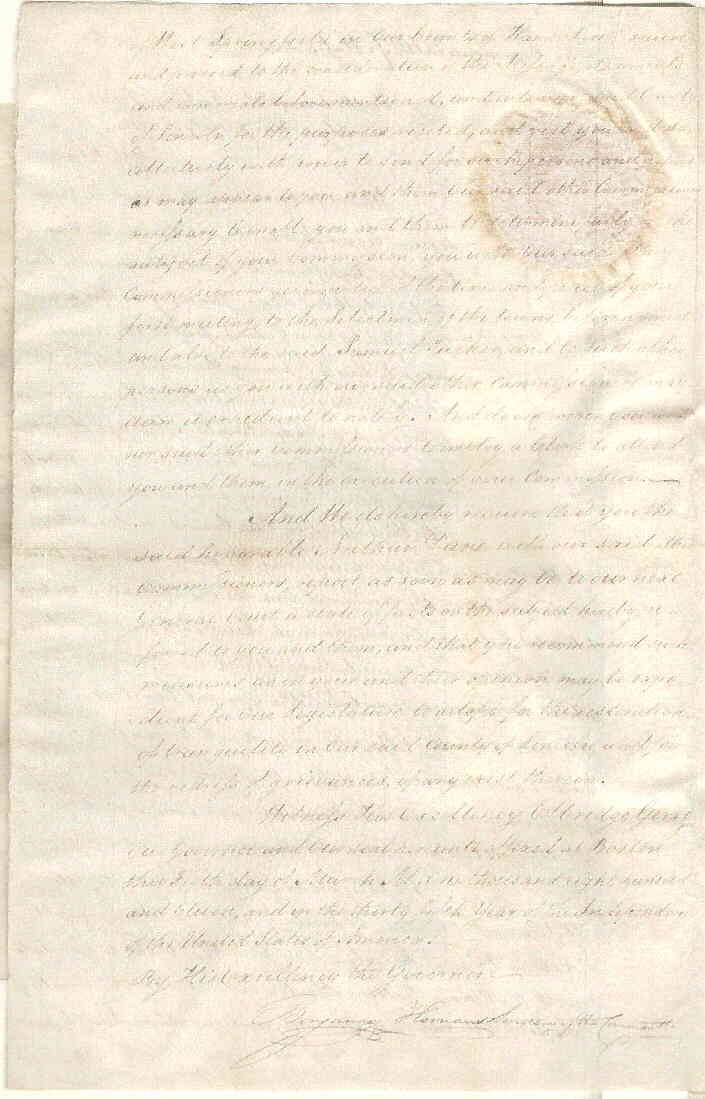 and proceed to the consideration of the
and
of Lincoln for the purposes recited, and vest you and them
collectively with power to send for such persons and papers
as may appear to you and them our said other Commissioners
necessary to enable you and them to determine fully on the
subject of your Commission, you with our said
Commissioners giving notice of the time and place of your
first meeting, to the Selectmen of the towns beforenamed
and also to the said Samuel Tucker, and to such other
persons as you with our said other Commissioners may
deem it expedient to notify. And do empower you and
our said other Commissioners to employ a Clerk to attend
you and them, in the execution of your Commission.
And We do hereby require that you the
said honorable Nathan Dane with our said other
Commissioners, report as soon as may be to our next
General Court a state of facts on the subject hereby re-
ferred to you and them, and that you recommend such
measures as in your and their opinion may be expe-
dient for our Legislature to adopt for the restoration
of tranquility in our said County of Lincoln, and for
the redress of grievances, if any exist therein.
Witness His Excellency Elbridge Gerry
Our Governor and Our Seal hereunto affixed at Boston
this day of March A.D. one thousand eight hundred
and eleven, and in the thirty fifth Year of the Independence
of the United States of America.
By His Excellency the Governor
Benjamin Homans Secretary of the Commonwth.